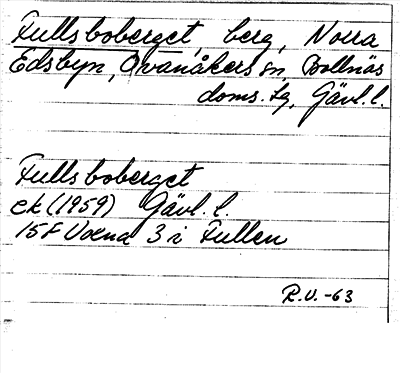 Fullsboberget, berg, Norra
Edsbyn, Ovanåkers sn, Bollnäs
doms. lg, Gävl. l.
Fullsboberget
ek (1959) Gävl. l.
15F Voxna 3 i Fullen
R.V. -63